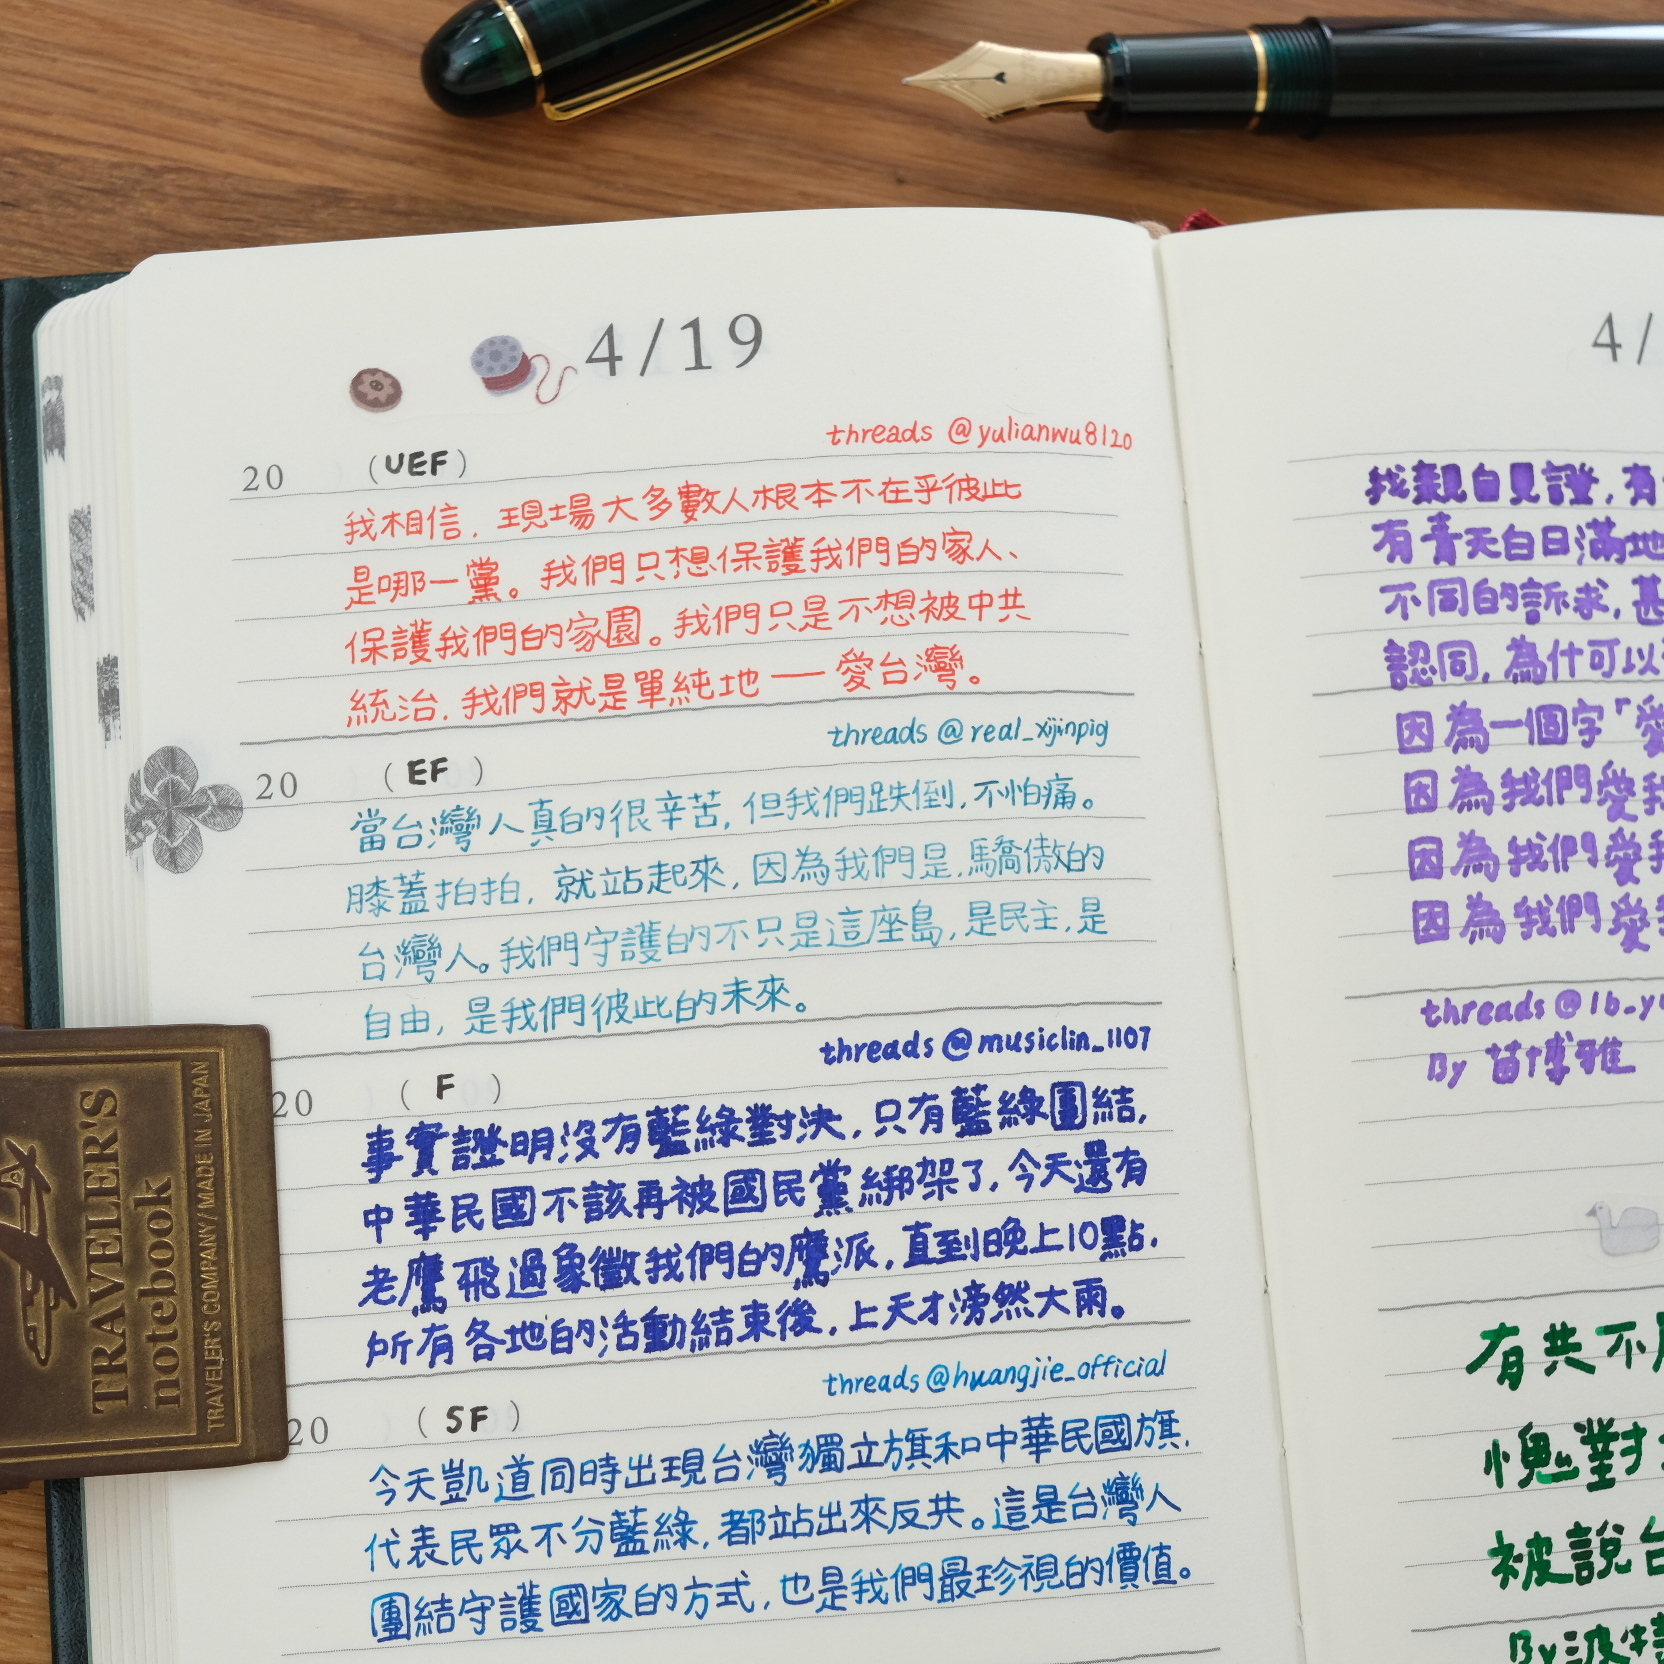 4/19
threads @yulianwu8120
20 (UEF)
我相信，現場大多數人根本不在乎彼此
是哪一黨。我們只想保護我們的家人、
保護我們的家園。我們只是不想被中共
統治，我們就是單純地——愛台灣。
threads @real_xijinpig
20 (EF)
當台灣人真的很辛苦，但我們跌倒，不怕痛。
膝蓋拍拍，就站起來，因為我們是，驕傲的
台灣人。我們守護的不只是這座島，是民主，是
自由，是我們彼此的未來。
threads @musiclin_1107
20 (F)
事實證明沒有藍綠對決，只有藍綠團結，
中華民國不該再被國民黨綁架了，今天還有
老鷹飛過象徵我們的鷹派，直到晚上10點，
所有各地的活動結束後，上天才滂然大雨。
threads @huangjie_official
20 (SF)
今天凱道同時出現台灣獨立旗和中華民國旗，
代表民眾不分藍綠，都站出來反共。這是台灣人
團結守護國家的方式，也是我們最珍視的價值。
TRAVELER'S
notebook
TRAVELER'S COMPANY MADE IN JAPAN
4/
我親自見證，有
有青天白日滿地
不同的訴求，甚
認同，為什可以
因為一個字「愛
因為我們愛
因為我們愛
因為我們愛
threads @lb.y
By 苗博雅
有共不
愧對
被說台
By 波特